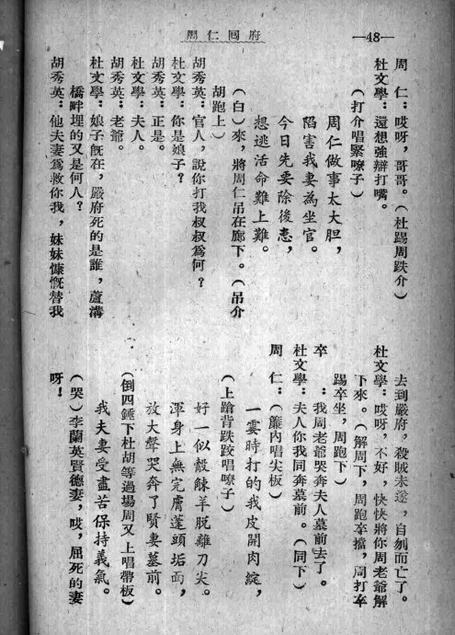 周仁囘府
—48—
周　仁：哎呀，哥哥。（杜踢周跌介）
杜文學：還想強辯打嘴。
（打介唱緊嘹子）
周仁做事太大胆，
陷害我妻為坐官。
今日先要除後患，
想逃活命難上難。
（白）來，將周仁吊在廊下。（吊介
胡跑上）
胡秀英：官人，說你打我叔叔爲何？
杜文學：你是娘子？
胡秀英：正是。
杜文學：夫人。
胡秀英：老爺。
杜文學：娘子旣在，嚴府死的是誰，蘆溝
橋畔埋的又是何人？
胡秀英：他夫妻爲救你我，妹妹慷慨替我
去到嚴府，殺賊未遂，自刎而亡了。
杜文學：哎呀，不好，快快將你周老爺解
下來。（解周下，周跑卒擋，周打卒
踢卒坐，周跑下）
卒　　：我周老爺哭奔夫人墓前去了。
杜文學：夫人你我同奔墓前。（同下）
周　仁：（簾內唱尖板）
一霎時打的我皮開肉綻，
（上蹌背跌跤唱嘹子）
好一似觳觫羊脫離刀尖。
渾身上無完膚蓬頭垢面，
放大聲哭奔了賢妻墓前。
（倒四錘下杜胡等過場周又上唱帶板）
我夫妻受盡苦保持義氣。
（哭）李蘭英賢德妻，哎，屈死的妻
呀！